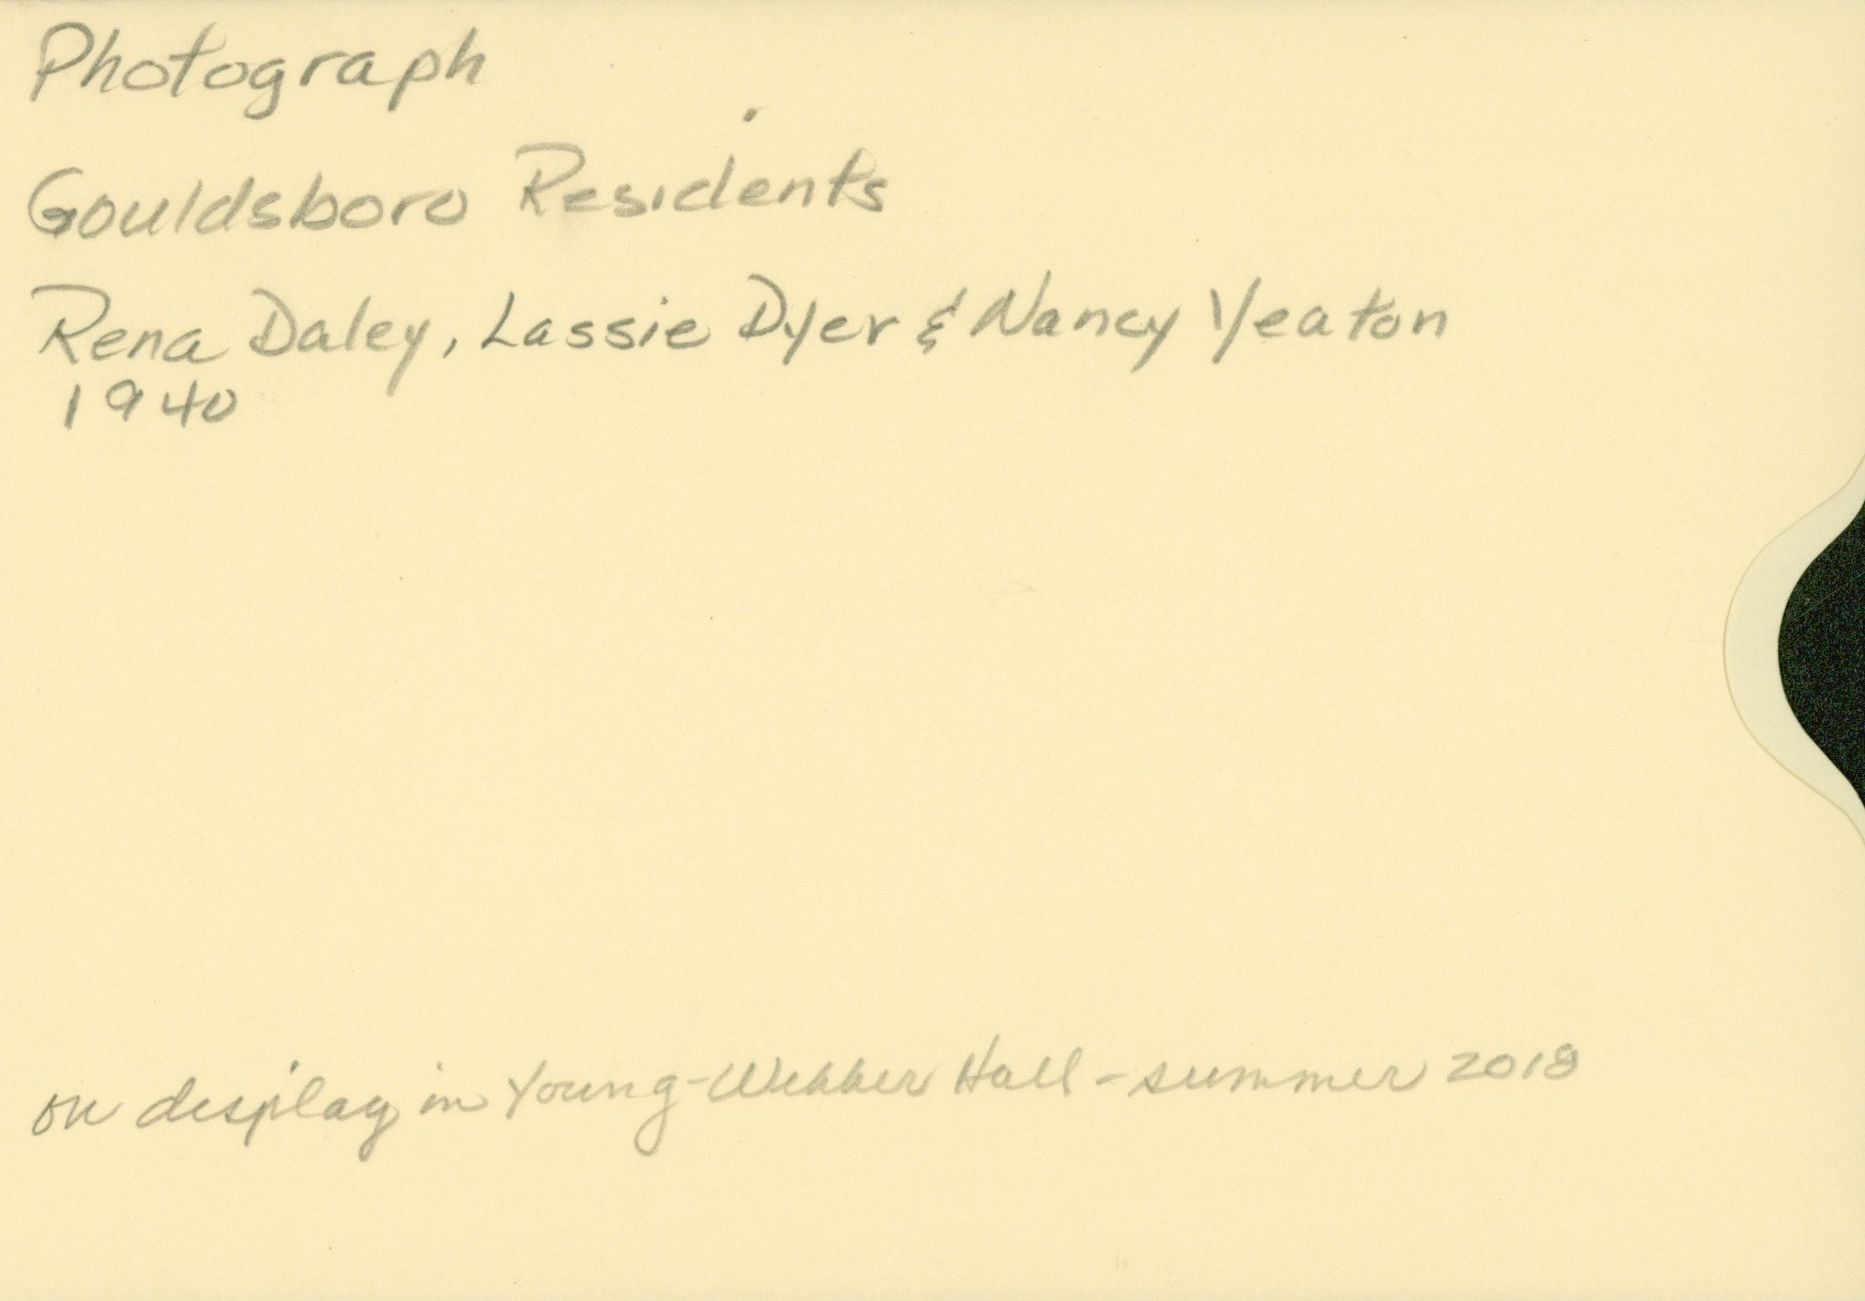 Photograph
Gouldsboro Residents
Rena Daley, Lassie Dyer & Nancy Yeaton
1940
on display in Young-Webber Hall - summer 2018